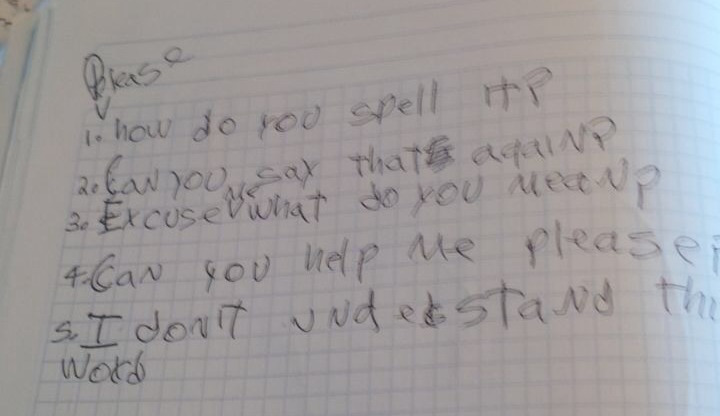 Please
1. how do you spell it?
2. Can you say that again?
3. Excuse me what do you mean?
4. Can you help me please?
5. I don't understand thi
word